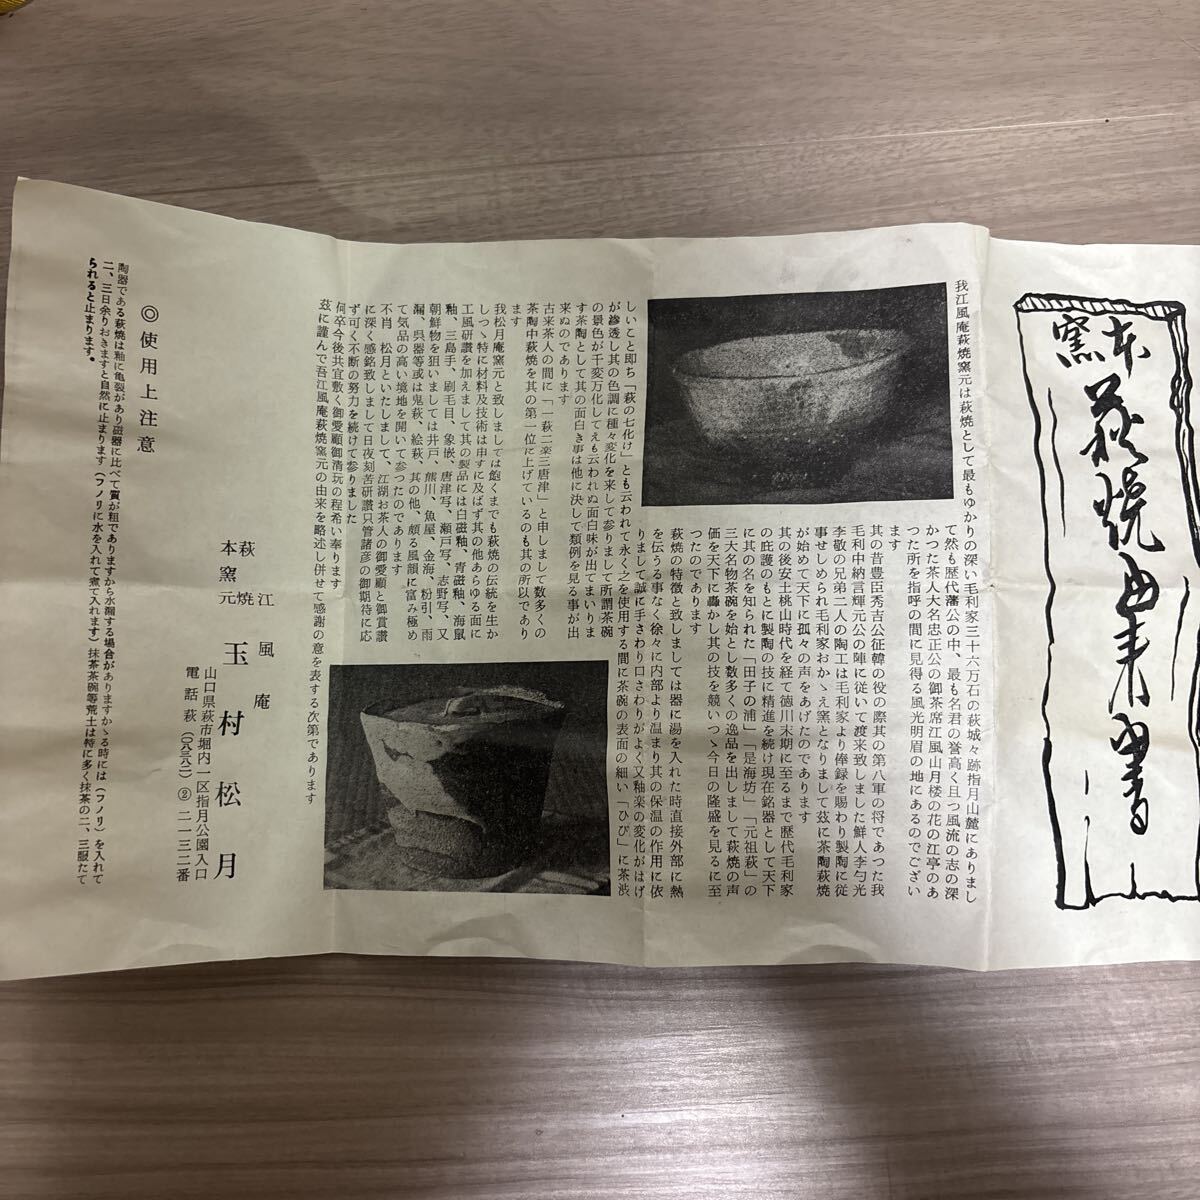 本窯 萩焼由来書
我江風庵萩焼窯元は萩焼として最もゆかりの深い毛利家三十六万石の萩城々跡指月山麓にありまし
て然も歴代藩公の中、最も名君の誉高く且つ風流の志の深
かつた茶人大名忠正公の御茶席江風山月楼の花の江亭のあ
つた所を指呼の間に見得る風光明眉の地にあるのでござい
ます
其の昔豊臣秀吉公征韓の役の際其の第八軍の将であつた我
毛利中納言輝元公の陣に従いて渡来致しました鮮人李勺光
李敬の兄弟二人の陶工は毛利家より俸録を賜わり製陶に従
事せしめられ毛利家おかゝえ窯となりまして玆に茶陶萩焼
が始めて天下に孤々の声をあげたのであります
其の後安土桃山時代を経て徳川末期に至るまで歴代毛利家
の庇護のもとに製陶の技に精進を続け現在銘器として天下
に其の名を知られた「田子の浦」「是海坊」「元祖萩」の
三大名物茶碗を始とし数多くの逸品を出しまして萩焼の声
価を天下に轟かし其の技を競いつゝ今日の隆盛を見るに至
つたのであります
萩焼の特徴と致しましては器に湯を入れた時直接外部に熱
を伝うる事なく徐々に内部より温まり其の保温の作用に依
りまして誠に手さわり口さわりがよく又釉楽の変化がはげ
しいこと即ち「萩の七化け」とも云われて永く之を使用する間に茶碗の表面の細い「ひび」に茶渋
が滲透し其の色調に種々変化を来して参りまして所謂茶碗
の景色が千変万化してえも云われぬ面白味が出てまいりま
す茶陶として其の面白き事は他に決して類例を見る事が出
来ぬのであります
古来茶人の間に「一萩二楽三唐津」と申しまして数多くの
茶陶中萩焼を其の第一位に上げているのも其の所以であり
ます
我松月庵窯元と致しましては飽くまでも萩焼の伝統を生か
しつゝ特に材料及技術は申すに及ばず其の他あらゆる面に
工風研讃を加えまして其の製品には白磁釉、青磁釉、海鼠
釉、三島手、刷毛目、象嵌、唐津写、瀬戸写、志野写、又
朝鮮物を狙いましては井戸、熊川、魚屋、金海、粉引、雨
漏、呉器等或は鬼萩、絵萩、其の他、頗る風韻に富み極め
て気品の高い境地を開いて参つたのであります
不肖 松月といたしまして、江湖お茶人の御愛顧と御賞讃
に深く感銘致しまして日夜刻苦研讃只管諸彦の御期待に応
ず可く不断の努力を続けて参りました
何卒今後共宜敷く御愛顧御清玩の程希い奉ります
玆に謹んで吾江風庵萩焼窯元の由来を略述し併せて感謝の意を表する次第であります
萩焼 江風庵
本窯元 玉村松月
山口県萩市堀内一区指月公園入口
電話萩(〇八三八二)②二一三二番
◎使用上注意
陶器である萩焼は釉に亀裂があり磁器に比べて質が粗でありますから水漏する場合がありますかゝる時には(フノリ)を入れて
二、三日余りおきますと自然に止まります(フノリに水を入れて煮て入れます)抹茶茶碗等荒土は特に多く抹茶の二、三服たて
られると止まります。